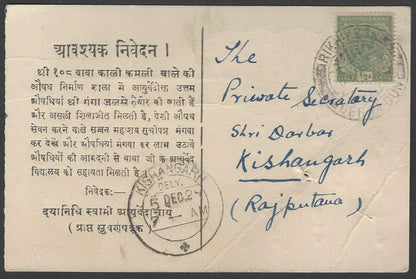 आवश्यक निवेदन ।
श्री १०८ बाबा काली कमली वाले की
औषध निर्माण शाला में आयुर्वेदोक्त उत्तम
औषधियां श्री गंगा जलसे तैयार की जाती हैं
और असली शिलाजीत मिलती है, देशी औषध
सेवन करने वाले सज्जन महाशय सूचीपत्र मंगवा
कर देखें और औषधियां मंगवा कर लाभ उठावें
औषधियों की आमदनी से बाबा जी के आयुर्वेद
विद्यालय को सहायता मिलती है ।
निवेदक:—
दयानिधि स्वामी आयुर्वेदाचार्य
( प्राप्त स्वर्णपदक )
The
Private Secretary
Shri Darbar
Kishangarh
(Rajputana)
KISHANGARH
DELY.
5 DEC.2
AM
RIK